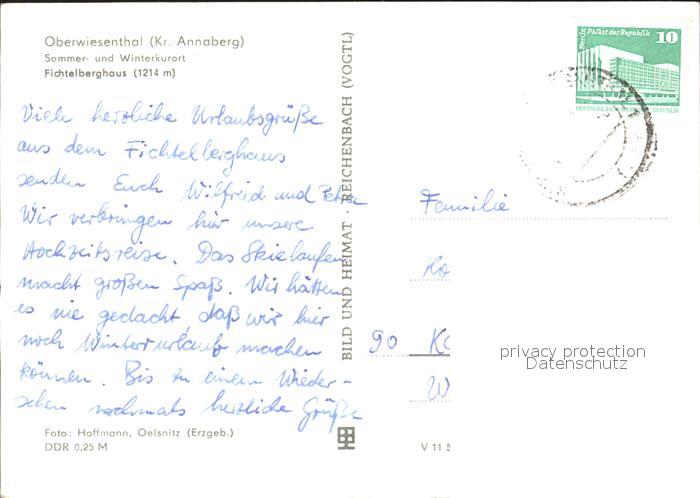 Oberwiesenthal (Kr. Annaberg)
Sommer- und Winterkurort
Fichtelberghaus (1214 m)
Viele herzliche Urlaubsgrüße
aus dem Fichtelberghaus
senden Euch Wilfried und Petra
Wir verbringen hier unsere
Hochzeitsreise. Das Skielaufen
macht großen Spaß. Wir hätten
es nie gedacht daß wir hier
noch Winterurlaub machen
können. Bis zu einem Wieder-
sehen nochmals herzliche Grüße
Foto: Hoffmann, Oelsnitz (Erzgeb.)
DDR 0,25 M
BILD UND HEIMAT · REICHENBACH (VOGTL)
V 11 5
Berlin Palast der Republik
10
DEUTSCHE DEMOKRATISCHE REPUBLIK
Familie
Ko
90 K
W
privacy protection
Datenschutz